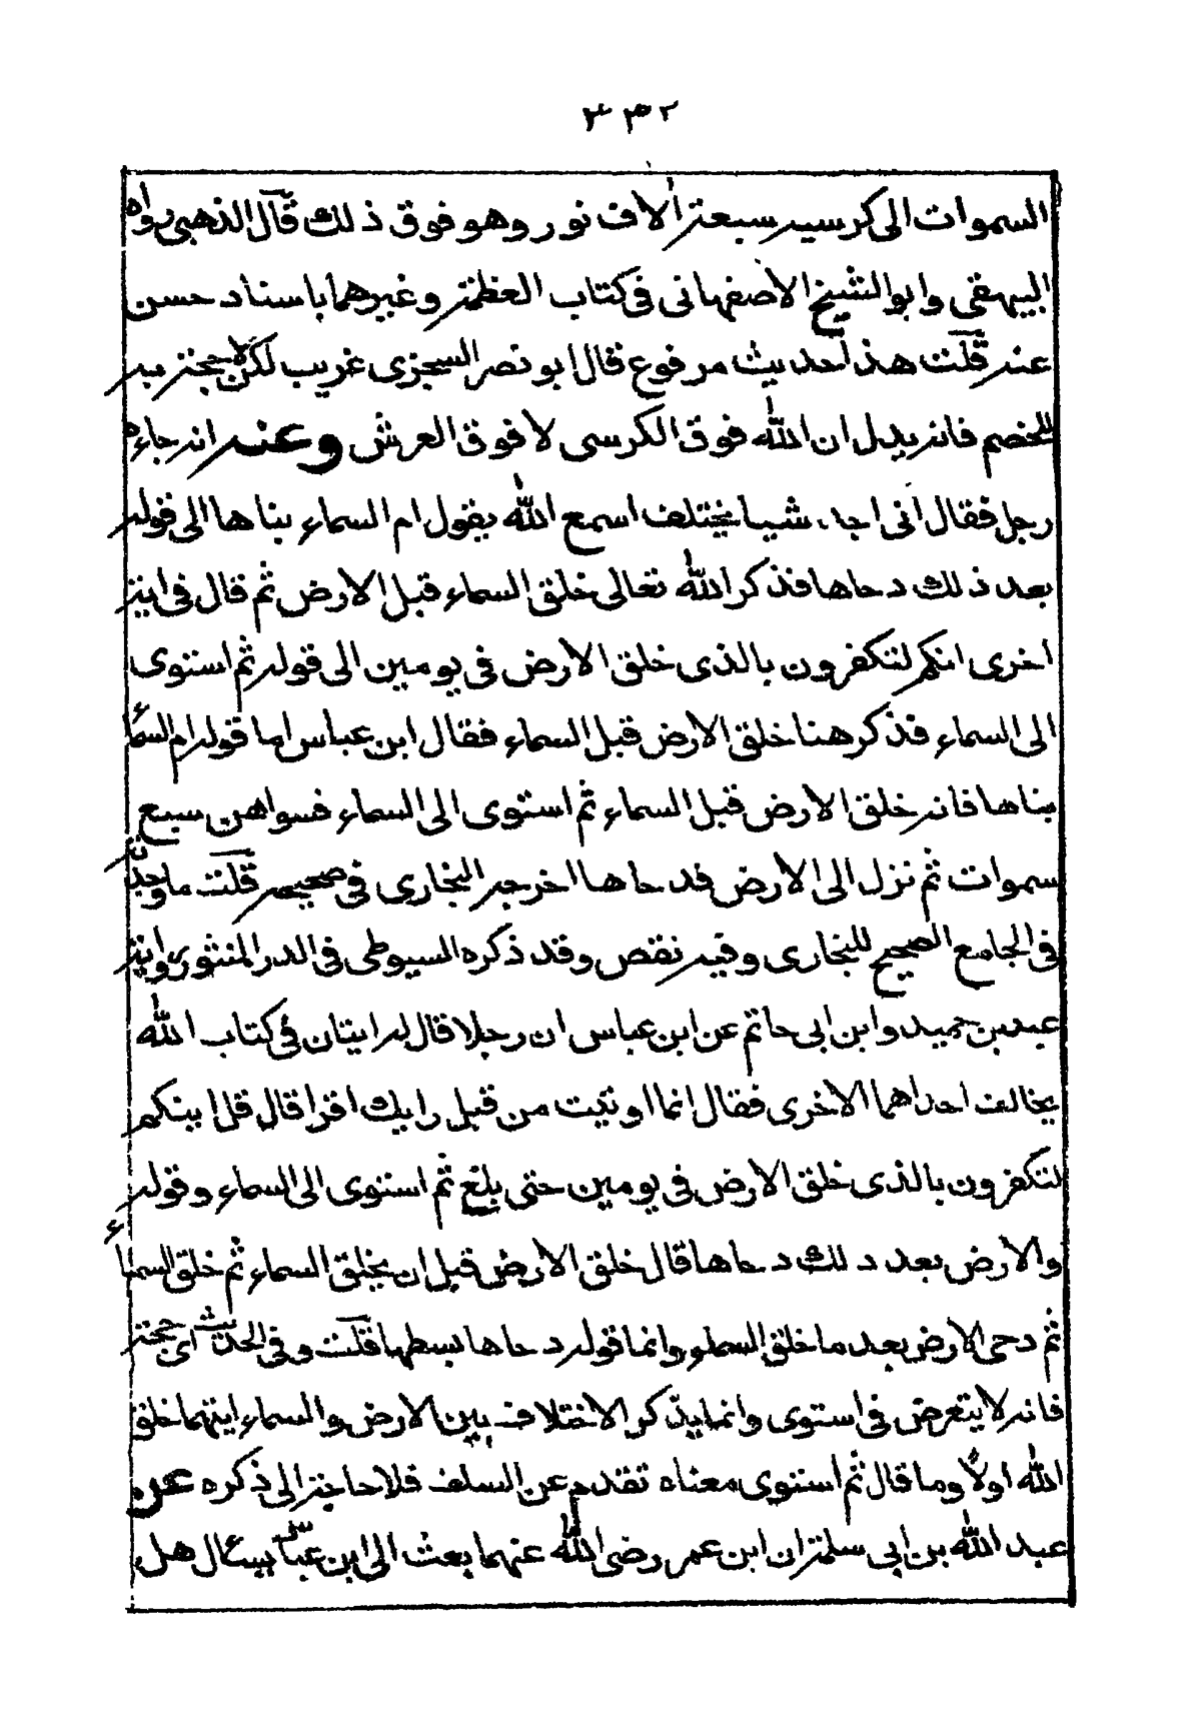 ٢٣٢
السموات الى كرسيه سبعة الاف نور وهو فوق ذلك قال الذهبى رواه
البيهقى وابو الشيخ الاصفهانى فى كتاب العظمة وغيرهما باسناد حسن
عنه قلت هذا حديث مرفوع قال ابو نصر السجزى غريب لكن لا حجة فيه
للخصم فانه يدل ان الله فوق الكرسى لا فوق العرش وعنه انه جاءه
رجل فقال انى اجد شيا يختلف اسمع الله يقول ام السماء بناها الى قوله
بعد ذلك دحاها فذكر الله تعالى خلق السماء قبل الارض ثم قال فى اية
اخرى ائنكم لتكفرون بالذى خلق الارض فى يومين الى قوله ثم استوى
الى السماء فذكر هنا خلق الارض قبل السماء فقال ابن عباس اما قوله ام السماء
بناها فانه خلق الارض قبل السماء ثم استوى الى السماء فسواهن سبع
سموات ثم نزل الى الارض فدحاها اخرجه البخارى فى صحيحه قلت ما وجدته
فى الجامع الصحيح للبخارى وفيه نقص وقد ذكره السيوطى فى الدر المنثور رواية
عبد بن حميد وابن ابى حاتم عن ابن عباس ان رجلا قال له ايتان فى كتاب الله
يخالف احداهما الاخرى فقال انما اوتيت من قبل رايك اقرا قال قل اينكم
لتكفرون بالذى خلق الارض فى يومين حتى بلغ ثم استوى الى السماء وقوله
والارض بعد ذلك دحاها قال خلق الارض قبل ان يخلق السماء ثم خلق السماء
ثم دحى الارض بعد ما خلق السماء وانما قوله دحاها بسطها قلت وفى الحديث اى حجة
فانه لا يتعرض فى استوى وانما يذكر الاختلاف بين الارض والسماء ايتهما خلق
الله اولا وما قال ثم استوى معناه تقدم عن السلف فلا حاجة الى ذكره عن
عبد الله بن ابى سلمة ان ابن عمر رضى الله عنهما بعث الى ابن عباس يسئال هل